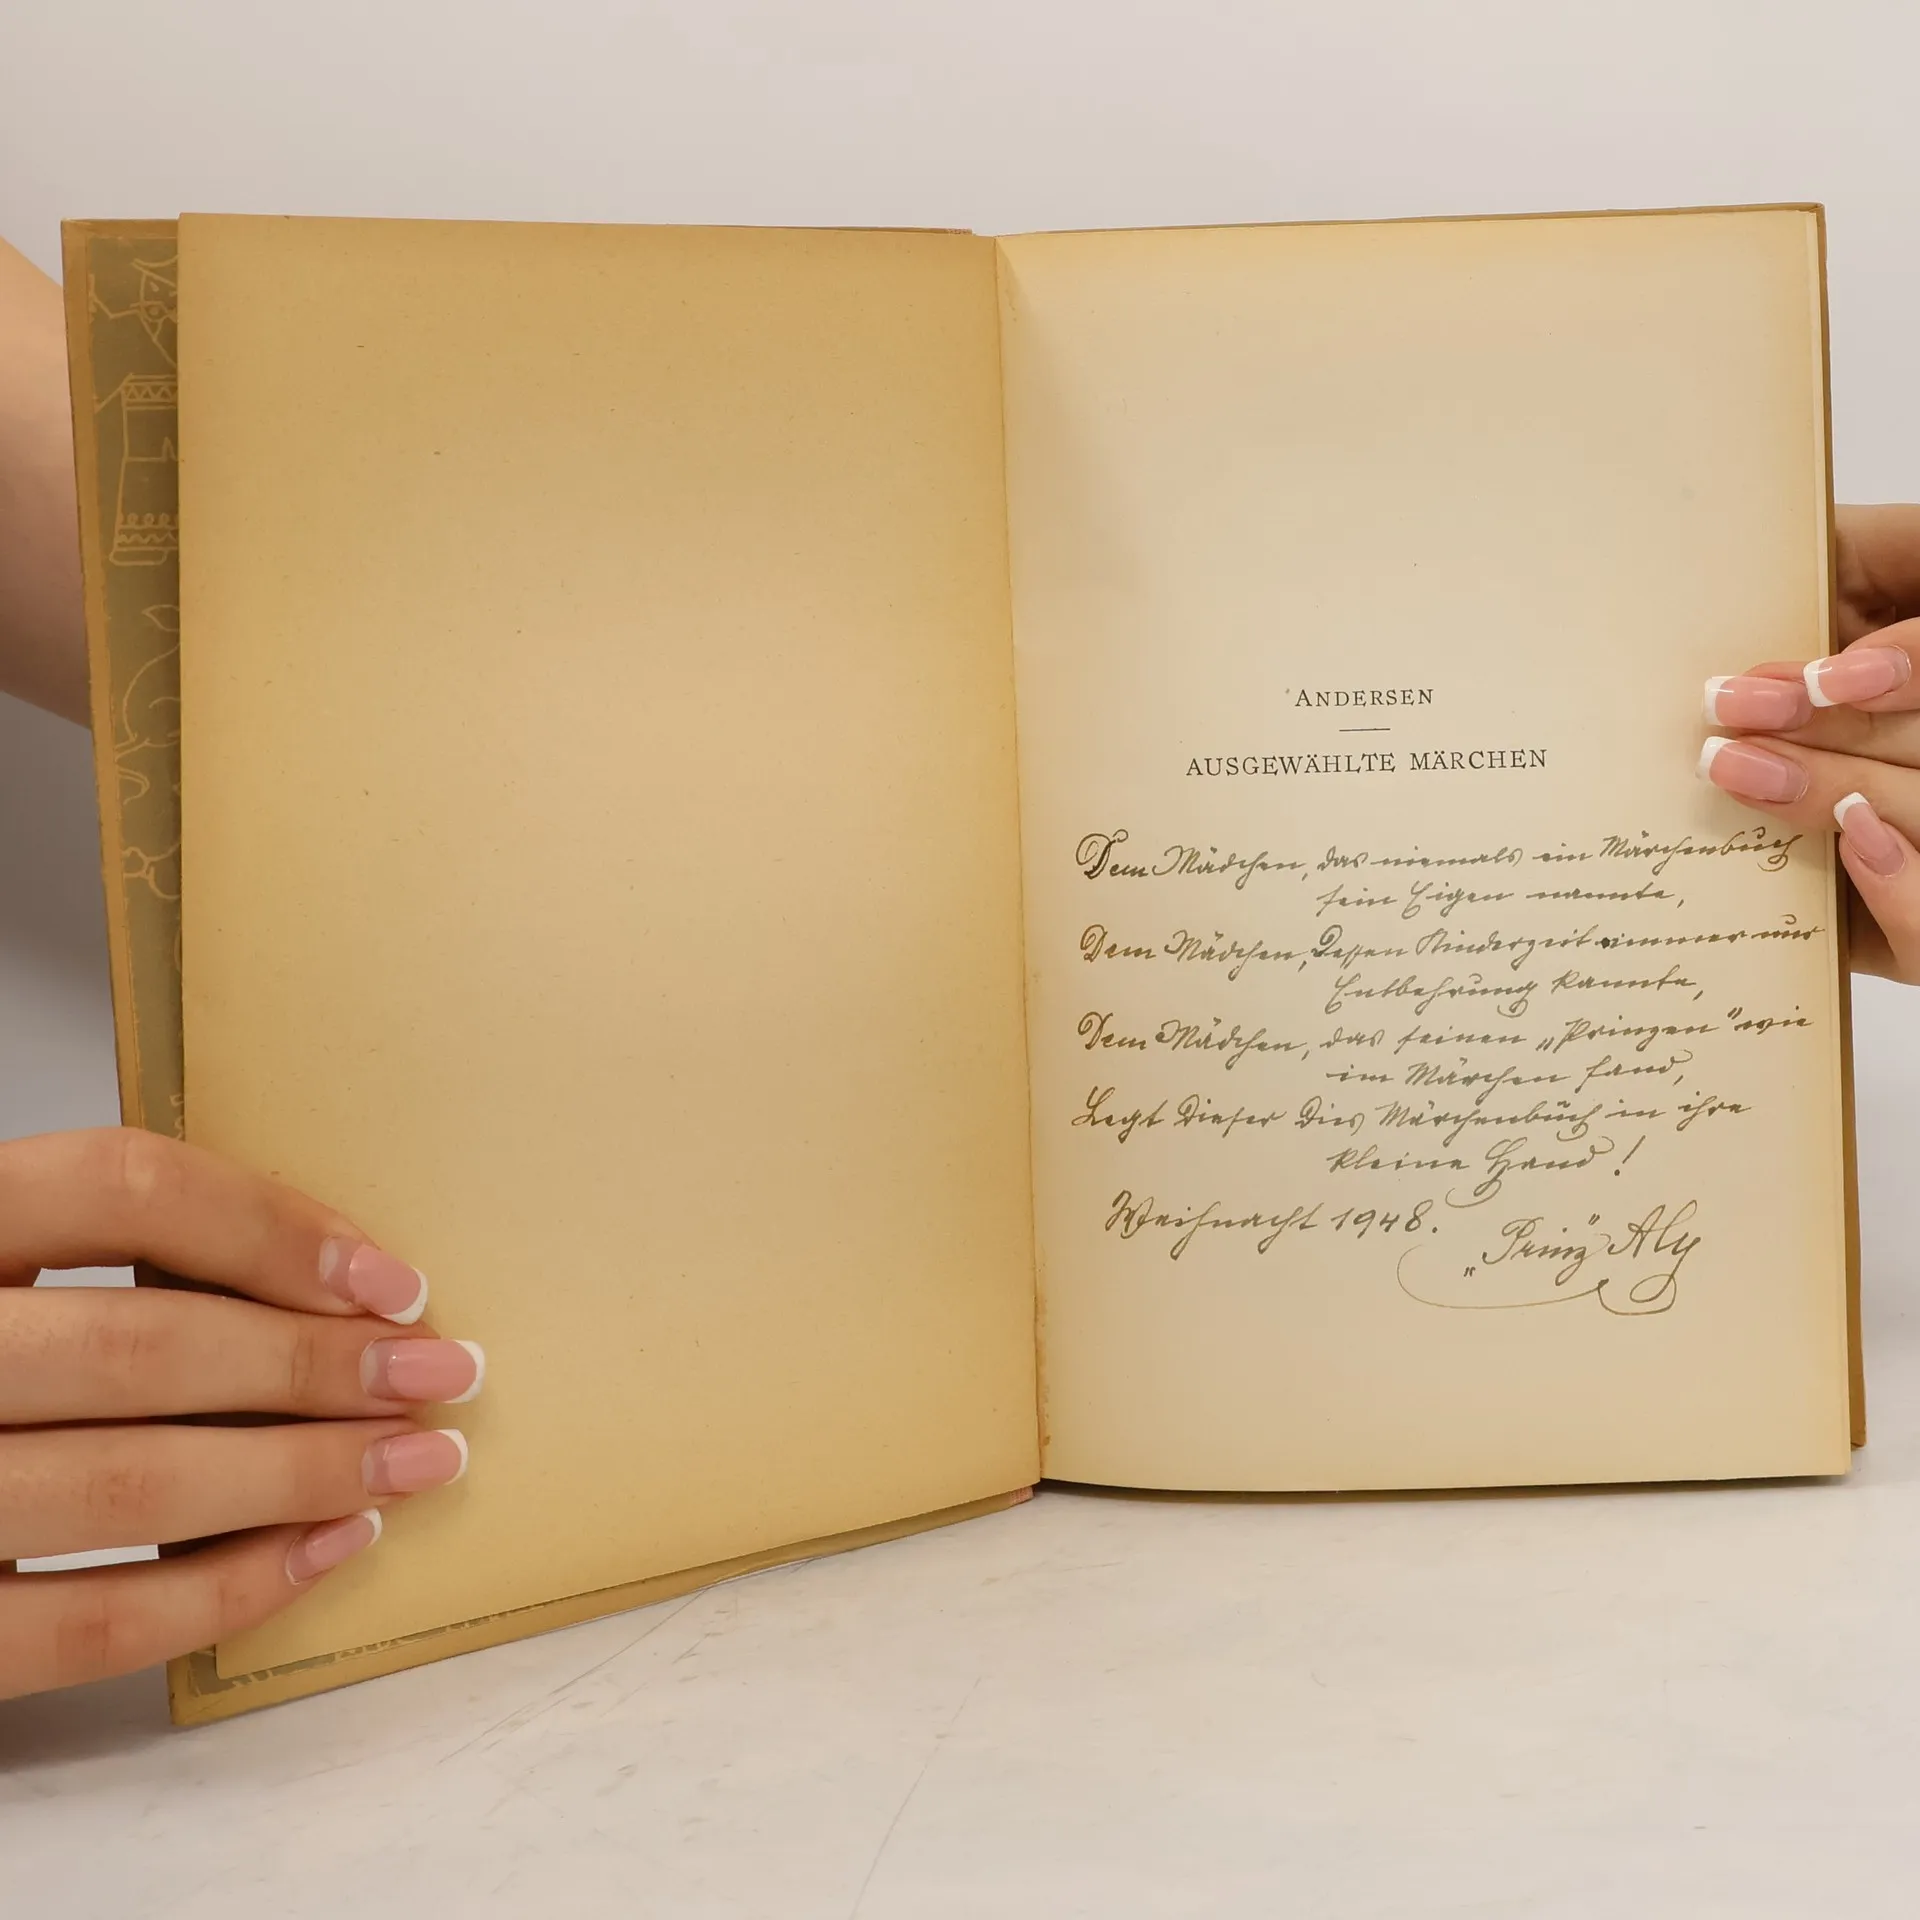 ANDERSEN
AUSGEWÄHLTE MÄRCHEN
Dem Mädchen, das niemals ein Märchenbuch
sein Eigen nannte,
Dem Mädchen, dessen Kinderzeit immer nur
Entbehrung kannte,
Dem Mädchen, das seinen „Prinzen" wie
im Märchen fand,
Legt dieser dies Märchenbuch in ihre
kleine Hand!
Weihnacht 1948.
„Prinz" Aly